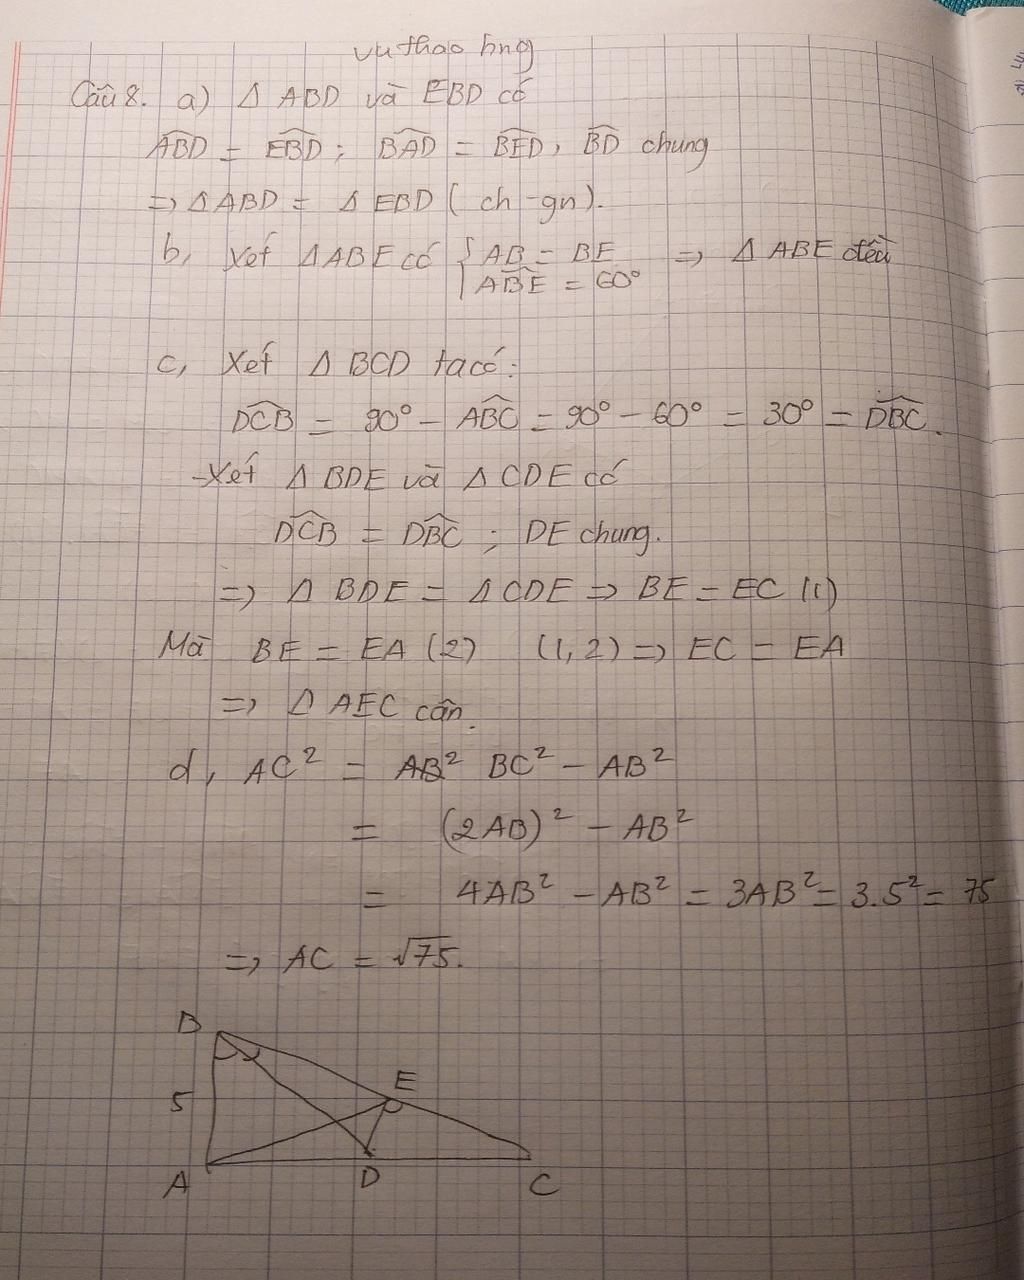 vuthao hng
Câu 8. a) Δ ABD và EBD có
ABD̂ = EBD̂ ; BAD̂ = BED̂, BD̂ chung
=> Δ ABD = Δ EBD ( ch - gn).
b, Xét Δ ABE có { AB = BE => Δ ABE đều
ABÊ = 60°
c, Xét Δ BCD ta có:
DCB̂ = 90° - ABĈ = 90° - 60° = 30° = DBĈ.
- Xét Δ BDE và Δ CDE có
DCB̂ = DBĈ ; DE chung.
=> Δ BDE = Δ CDE => BE = EC (1)
Mà BE = EA (2) (1, 2) => EC = EA
=> Δ AEC cân.
d, AC² = AB² BC² - AB²
= (2AB)² - AB²
= 4AB² - AB² = 3AB² = 3.5² = 75
=> AC = √75.
B
E
5
A D C